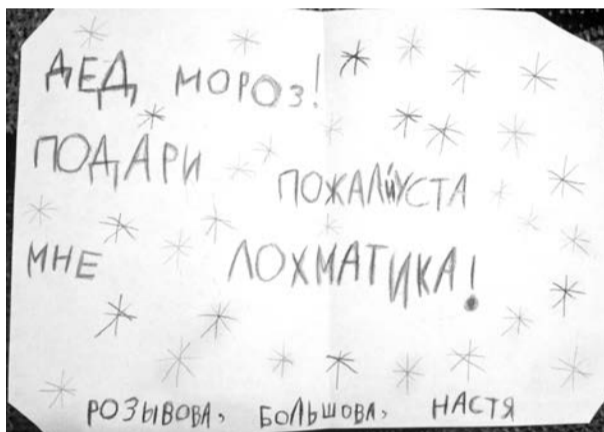 ДЕД МОРОЗ!
ПОДАРИ ПОЖАЛЙУСТА
МНЕ ЛОХМАТИКА!
РОЗЫВОВА, БОЛЬШОВА, НАСТЯ